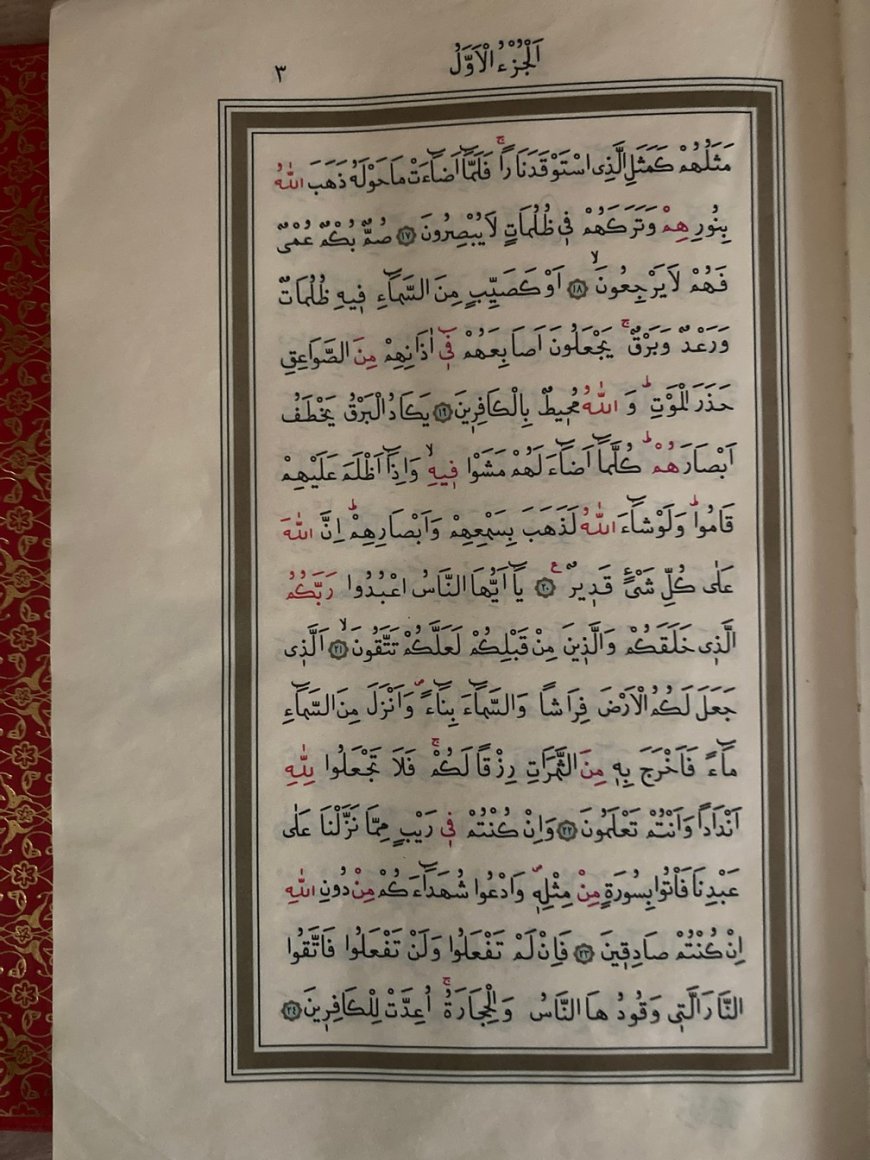 اَلْجُزْءُ الْاَوَّلُ ٣
مَثَلُهُمْ كَمَثَلِ الَّذِى اسْتَوْقَدَ نَاراًۚ فَلَمَّٓا اَضَٓاءَتْ مَا حَوْلَهُ ذَهَبَ اللّٰهُ
بِنُورِهِمْ وَتَرَكَهُمْ فٖى ظُلُمَاتٍ لَا يُبْصِرُونَ ﴿١٧﴾ صُمٌّ بُكْمٌ عُمْىٌ
فَهُمْ لَا يَرْجِعُونَۙ ﴿١٨﴾ اَوْ كَصَيِّبٍ مِنَ السَّمَٓاءِ فٖيهِ ظُلُمَاتٌ
وَرَعْدٌ وَبَرْقٌۚ يَجْعَلُونَ اَصَابِعَهُمْ فٖٓى اٰذَانِهِمْ مِنَ الصَّوَاعِقِ
حَذَرَ الْمَوْتِۜ وَ اللّٰهُ مُحٖيطٌ بِالْكَافِرٖينَ ﴿١٩﴾ يَكَادُ الْبَرْقُ يَخْطَفُ
اَبْصَارَهُمْۜ كُلَّمَٓا اَضَٓاءَ لَهُمْ مَشَوْا فٖيهِۙ وَاِذَٓا اَظْلَمَ عَلَيْهِمْ
قَامُواۜ وَلَوْ شَٓاءَ اللّٰهُ لَذَهَبَ بِسَمْعِهِمْ وَاَبْصَارِهِمْۜ اِنَّ اللّٰهَ
عَلٰى كُلِّ شَىْءٍ قَدٖيرٌ ﴿٢٠﴾ يَٓا اَيُّهَا النَّاسُ اعْبُدُوا رَبَّكُمُ
الَّذٖى خَلَقَكُمْ وَالَّذٖينَ مِنْ قَبْلِكُمْ لَعَلَّكُمْ تَتَّقُونَۙ ﴿٢١﴾ اَلَّذٖى
جَعَلَ لَكُمُ الْاَرْضَ فِرَاشاً وَالسَّمَٓاءَ بِنَٓاءًۖ وَاَنْزَلَ مِنَ السَّمَٓاءِ
مَٓاءً فَاَخْرَجَ بِهٖ مِنَ الثَّمَرَاتِ رِزْقاً لَكُمْۚ فَلَا تَجْعَلُوا لِلّٰهِ
اَنْدَاداً وَاَنْتُمْ تَعْلَمُونَ ﴿٢٢﴾ وَاِنْ كُنْتُمْ فٖى رَيْبٍ مِمَّا نَزَّلْنَا عَلٰى
عَبْدِنَا فَأْتُوا بِسُورَةٍ مِنْ مِثْلِهٖۖ وَادْعُوا شُهَدَٓاءَكُمْ مِنْ دُونِ اللّٰهِ
اِنْ كُنْتُمْ صَادِقٖينَ ﴿٢٣﴾ فَاِنْ لَمْ تَفْعَلُوا وَلَنْ تَفْعَلُوا فَاتَّقُوا
النَّارَ الَّتٖى وَقُودُهَا النَّاسُ وَالْحِجَارَةُۚ اُعِدَّتْ لِلْكَافِرٖينَ ﴿٢٤﴾